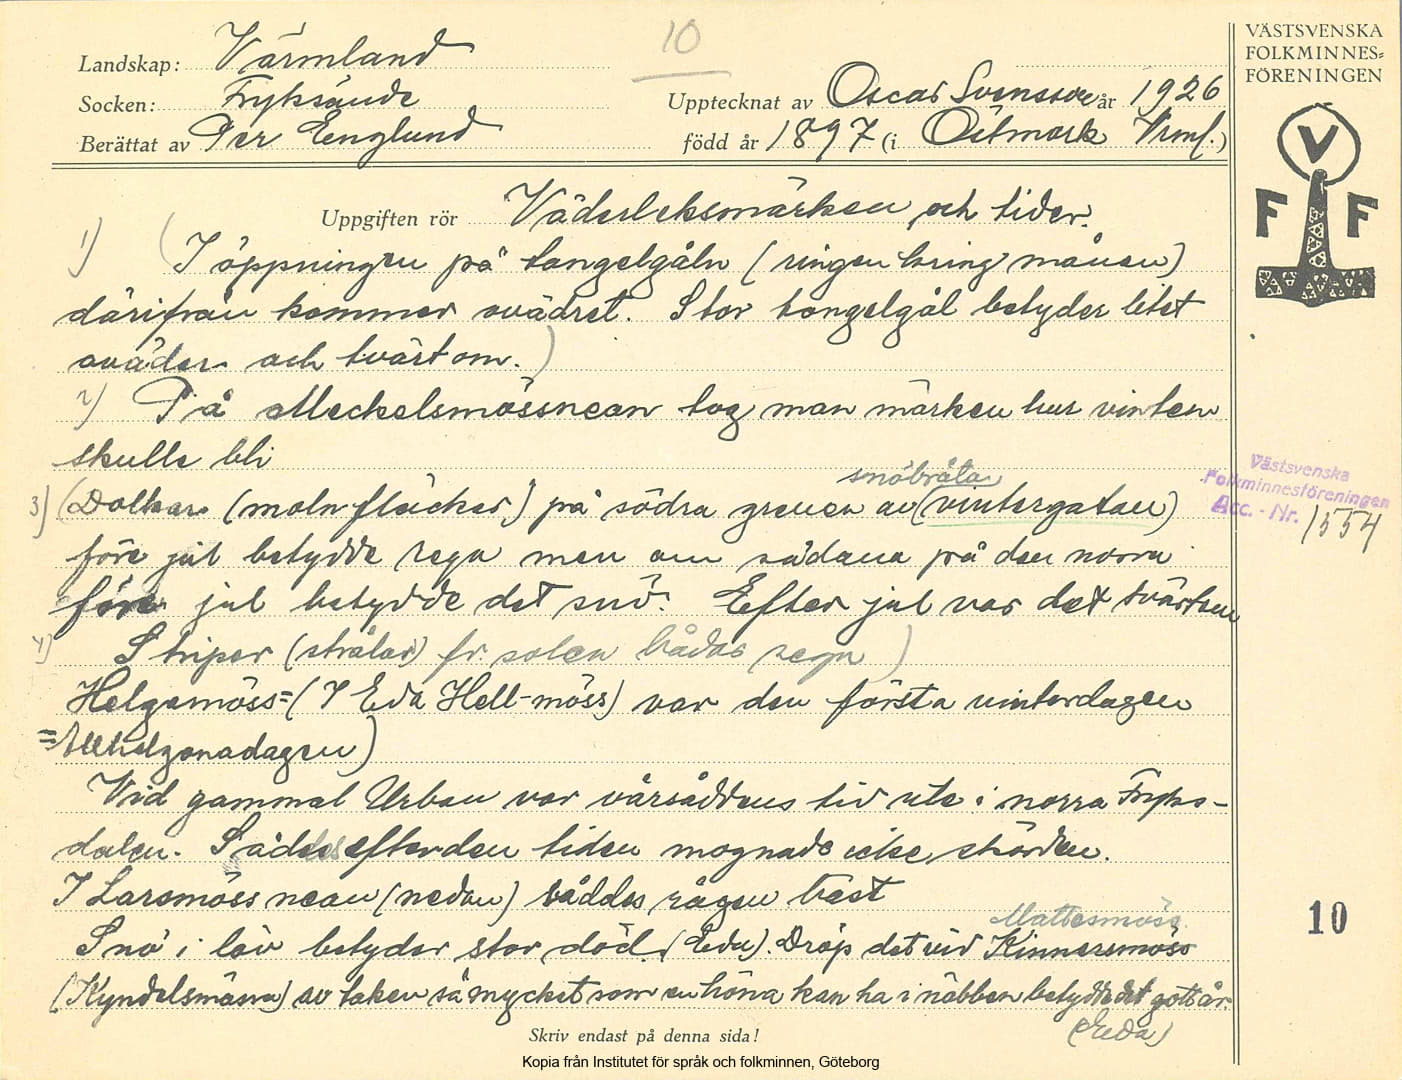 10
Landskap: Värmland
Socken: Fryksände
Berättat av Per Englund
Upptecknat av Oscar Svensson år 1926
född år 1897 (i Östmark Vrml.)
VÄSTSVENSKA
FOLKMINNES=
FÖRENINGEN
V
F F
Uppgiften rör Väderleksmärken och tider.
1) (I öppningen på tongelgåln (ringen kring månen)
därifrån kommer ovädret. Stor tongelgål betyder litet
oväder och tvärtom.)
2) På Meckelsmössnean tog man märken hur vintern
skulle bli
snöbråta
3) (Dolkar (molnfläckar) på södra grenen av (vintergatan)
före jul betydde regn men om sådana på den norra
före jul betydde det snö. Efter jul var det tvärtom
4) Striper (strålar) fr. solen bådar regn)
Helgemöss=(I Eda Hell-möss) var den första vinterdagen
=Allhelgonadagen)
Vid gammal Urban var vårsåddens tid ute i norra Fryks-
dalen. Såddes efter den tiden mognade icke skörden.
I Larsmöss nean (nedan) såddes rågen bäst
Mattesmöss
Snö i löv betyder stor död. (Eda). Dröp det vid Kinnersmöss
(Kyndelsmässa) av taken så mycket som en höna kan ha i näbben betydde det gott år.
(Eda)
Västsvenska
Folkminnesföreningen
Acc. - Nr. 1554
10
Skriv endast på denna sida!
Kopia från Institutet för språk och folkminnen, Göteborg